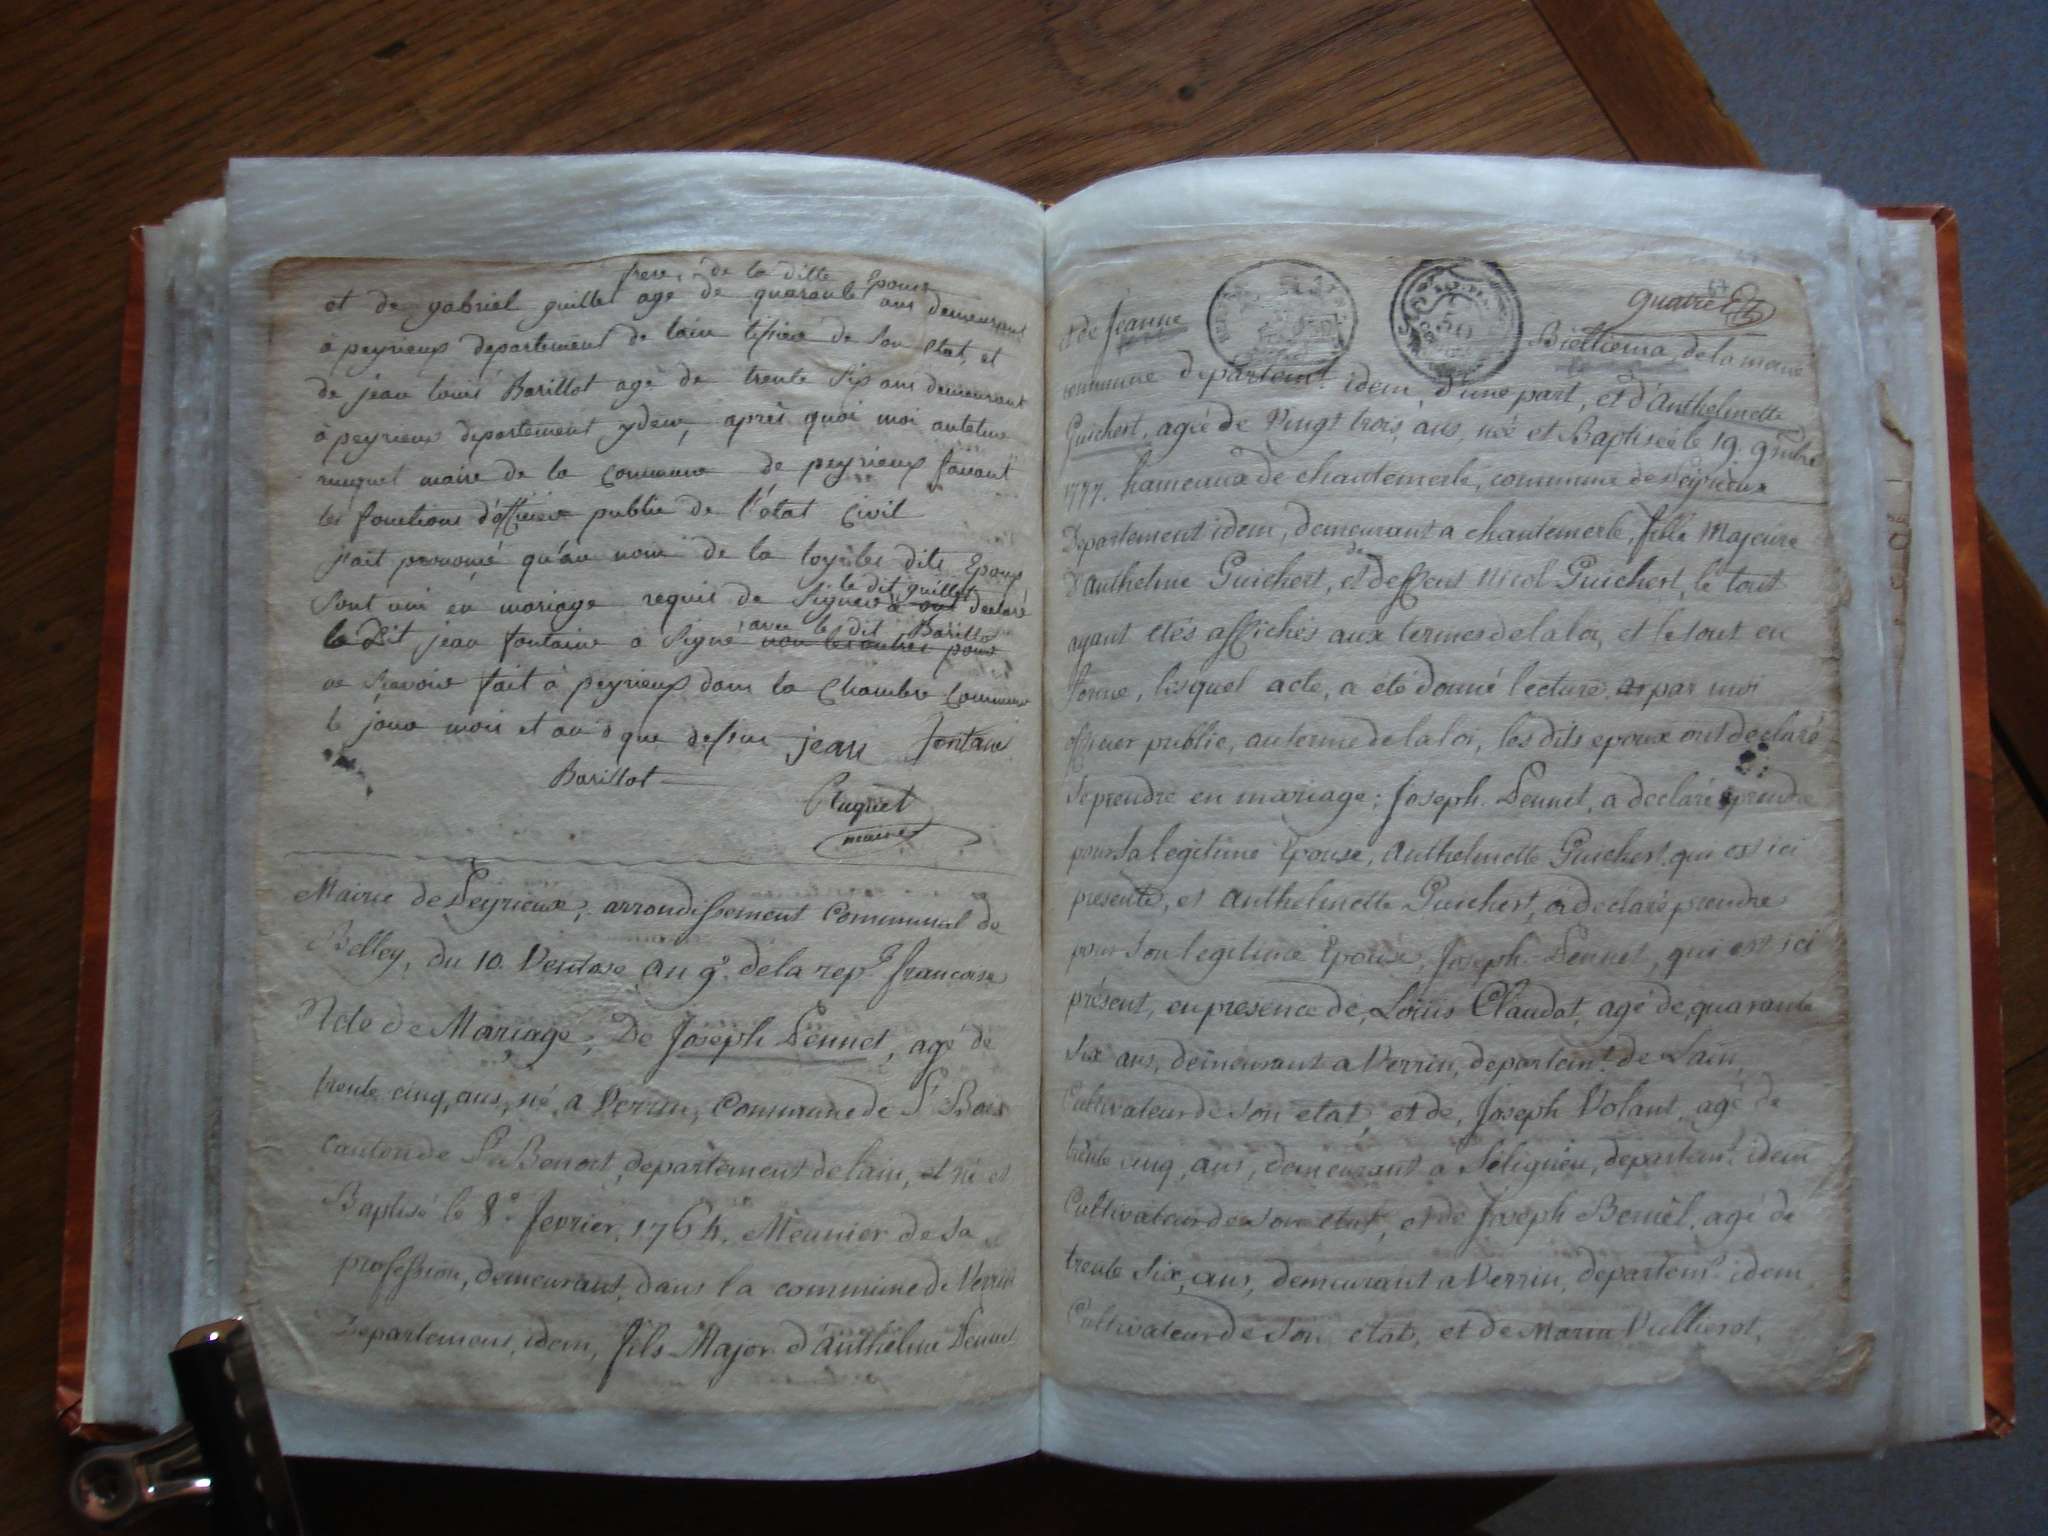 frere, de la ditte Epouse
et de gabriel guillet agé de quarante ans demeurant
à peyrieux departement de lain tissier de Son Etat, et
de jean louis Barillot agé de trente Six ans demeurant
à peyrieux departement ydem, après quoi moi antelme
maire de la commune de peyrieux faisant
les fonctions d'officier public de l'état civil
jait prononcé qu'au nom de la loy les dits Epoux
le dit guillet
Sont uni en mariage requis de Signer à declaré
avec le dit Barillot
le dit jean fontaine à Signé non les autres pour
ne Scavoir fait à peyrieux dans la Chambre Commune
le jour mois et an d que dessus jean fontaine
Barillot
maire
Mairie de Peyrieux, arrondissement Communal de
Belley, du 10. Ventose an 9e. de la rep.e francaise
Acte de Mariage; De Joseph Pennet, agé de
trente cinq, ans, né, a Verrin, Commune de St Bois
canton de St Benoit, departement de lain, et né et
Baptisé le 8.e fevrier, 1764, Meunier de Sa
profession, demeurant, dans la commune de Verrin
Departement, idem, fils Major d'anthelme Pennet
quatre
et de Jeanne de la meme
commune departemt. idem, d'une part, et d'Anthelmette
Guichert, agée de Vingt trois, ans, née et Baptisée le 19. 9mbre
1777. hameaux de chantemerle, commune de Peyrieux
Departement idem, demeurant a chantemerle, fille Majeure
D'anthelme Guichert, et de Nicol Guichert, le tout
ayant etés affichés aux termes de la loi, et le tout en
forme, lesquel acte, a été donné lecture, par moi
officier public, au terme de la loi, les dits epoux ont declaré
Se prendre en mariage; Joseph. Pennet, a declaré prendre
pour Sa legitime Epouse, Anthelmette Guichert, qui est ici
presente, et anthelmette Guichert, a declaré prendre
pour Son legitime Epoux, Joseph. Pennet, qui est ici
présent, en presence de, Louis Claudat, agé de, quarante
Six ans, demeurant a Verrin, departemt. de Lain,
Cultivateur de Son etat, et de, Joseph Volant, agé de
trente cinq, ans, demeurant a Seligneu, departemt. idem
Cultivateur de Son etat, et de Joseph agé de
trente Six, ans, demeurant a Verrin, departemt. idem
Cultivateur de Son etat, et de Vullierot,